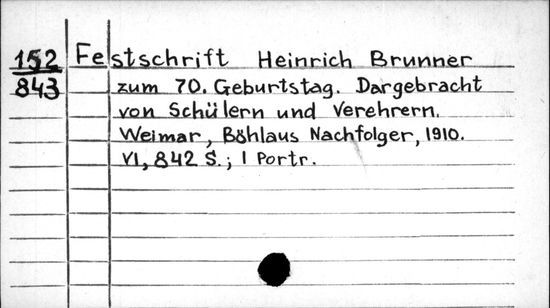 152
843
Festschrift Heinrich Brunner
zum 70. Geburtstag. Dargebracht
von Schülern und Verehrern.
Weimar, Böhlaus Nachfolger, 1910.
VI, 842 S.; 1 Portr.